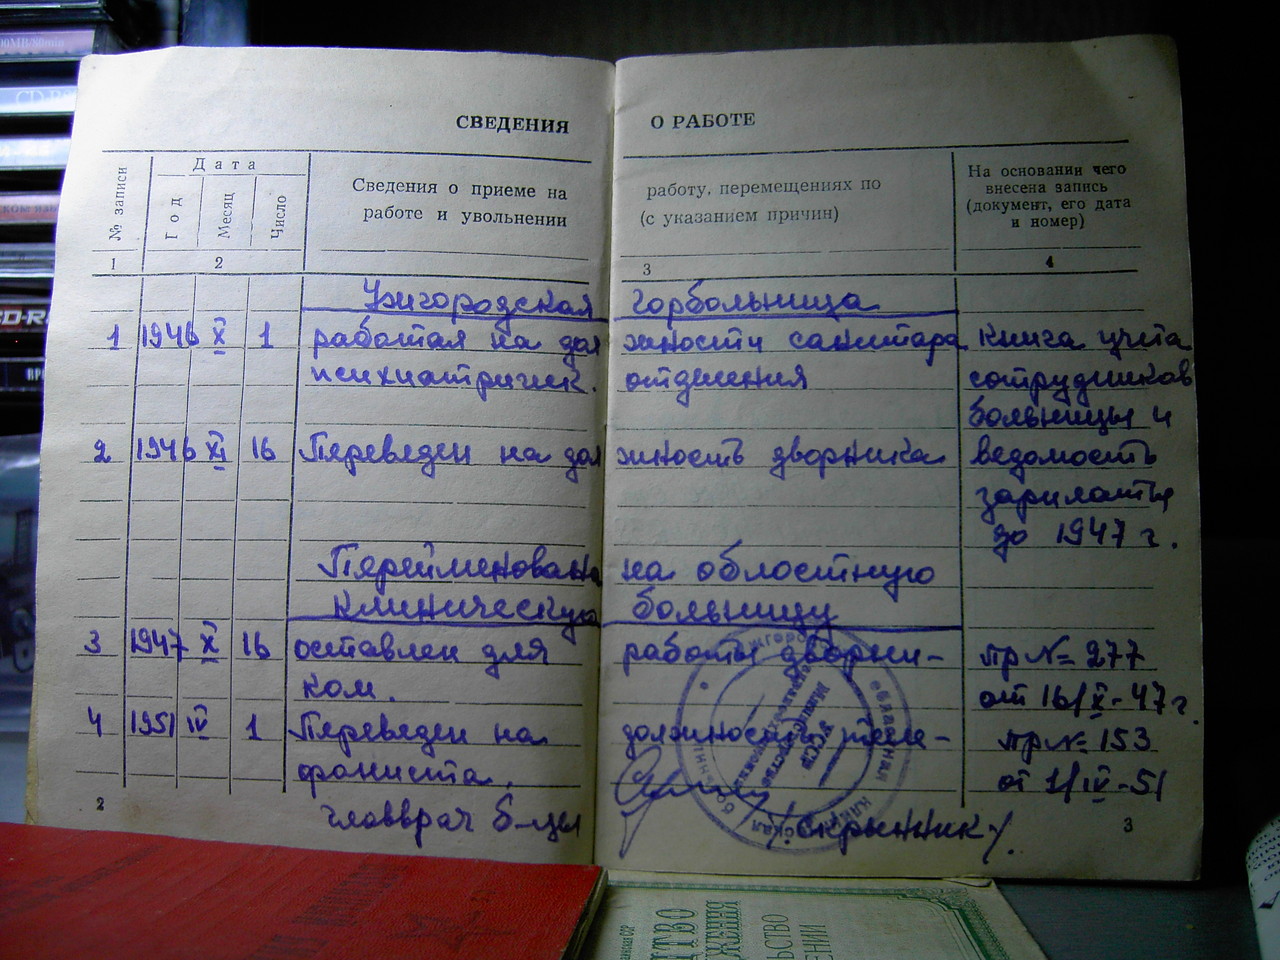 СВЕДЕНИЯ О РАБОТЕ
№ записи
Дата
Год
Месяц
Число
Сведения о приеме на работу, перемещениях по
работе и увольнении (с указанием причин)
На основании чего
внесена запись
(документ, его дата
и номер)
1 2 3 4
Ужгородская горбольница
1 1946 X 1 работал на должности санитара Книга учета
психиатрическ. отделения сотрудников
больницы и
2 1946 XI 16 Переведен на должность дворника ведомость
зарплаты
до 1947 г.
Переименована на областную
клиническую больницу
3 1947 X 16 оставлен для работы дворни- пр № 277
ком. от 16/X-47 г.
4 1951 IV 1 Переведен на должность теле- пр № 153
фониста. от 1/IV-51
главврач б-цы /Скрынник/.
2
3
областная
УССР
CD-R
CD-R